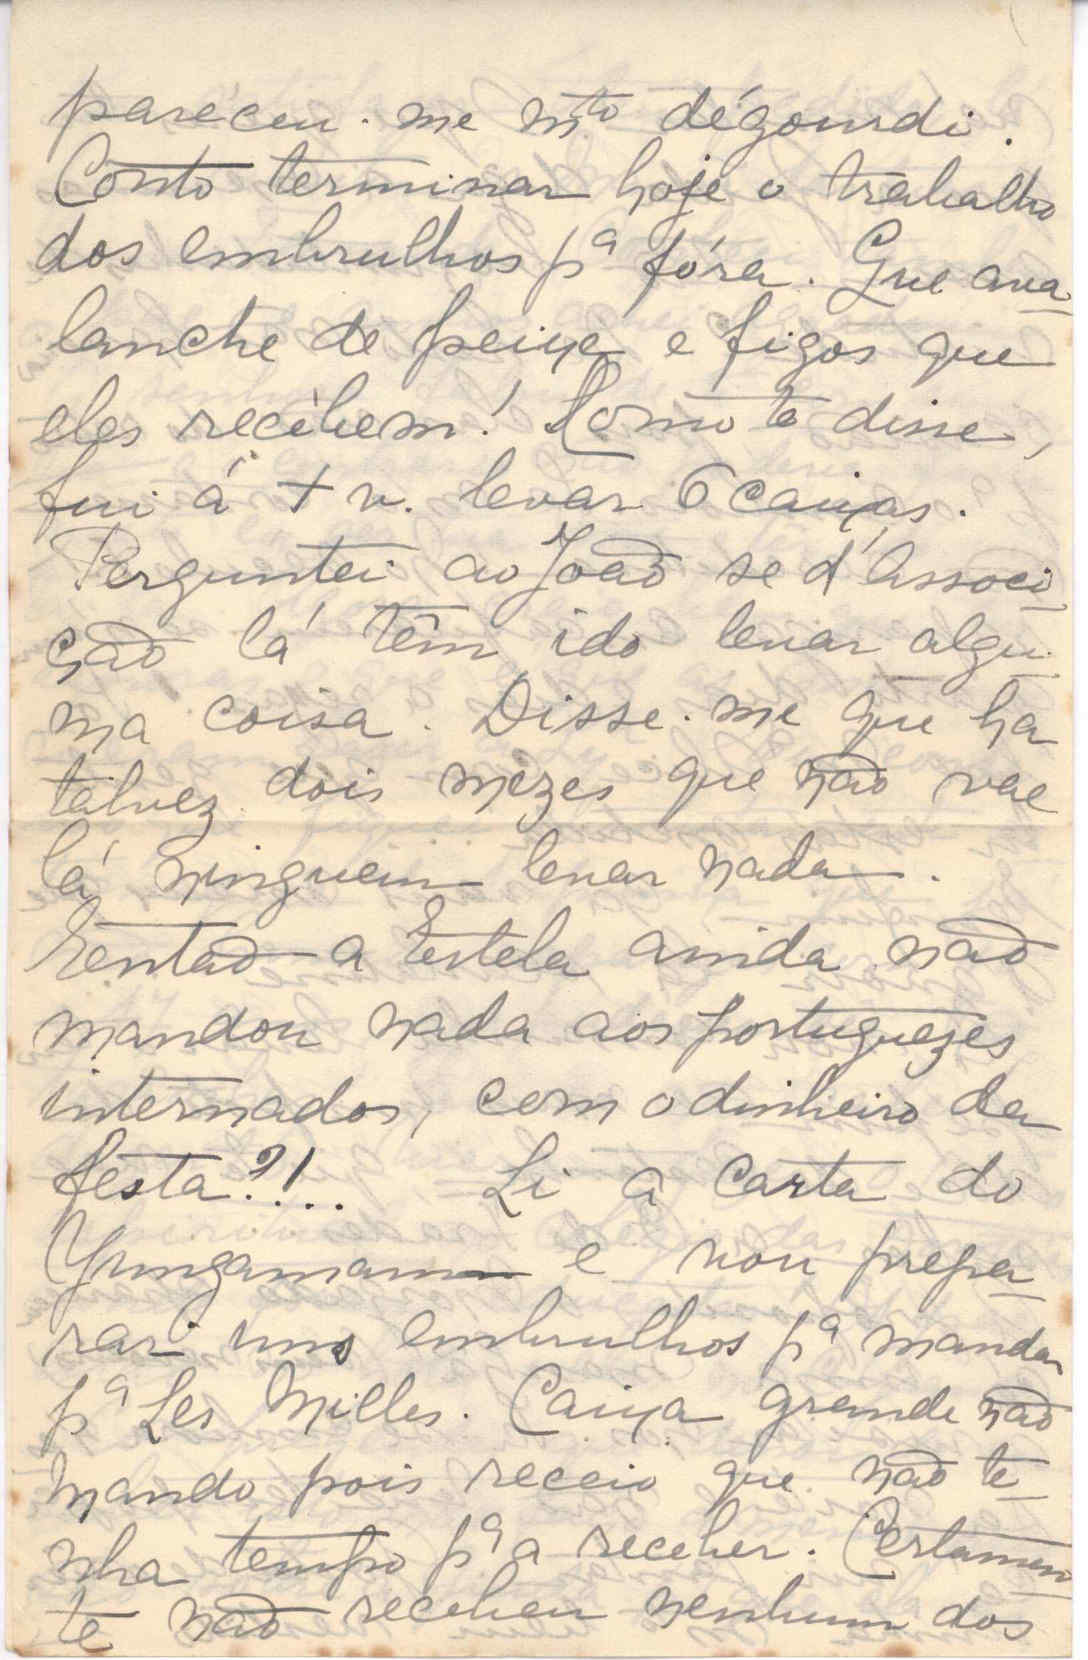 pareceu-me mto dégourdi.
Conto terminar hoje o trabalho
dos embrulhos pª fóra. Que ava-
lanche de peixe e figos que
eles recebem! Como te disse,
fui á + v. levar 6 caixas.
Perguntei ao João se d'Associ-
ção lá têm ido levar algu-
ma coisa. Disse-me que ha
talvez dois mezes que não vae
lá ninguem levar nada.
Então a Estela ainda não
mandou nada aos portuguezes
internados, com o dinheiro da
festa?!.. Li a carta do
Yungamann e vou prepa-
rar uns embrulhos pª mandar
pª Les Milles. Caixa grande não
mando pois receio que não te-
nha tempo pª a receber. Certamen-
te não recebeu nenhum dos